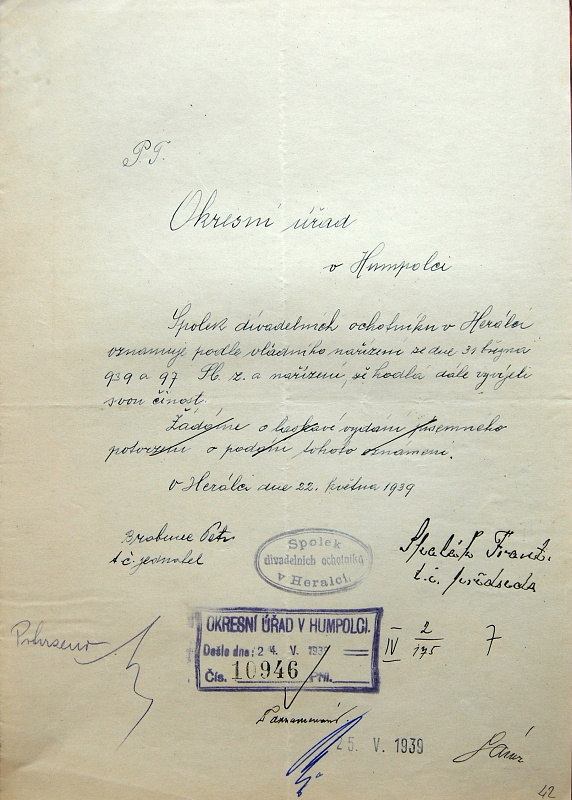 P.T.
Okresní úřad
v Humpolci
Spolek divadelních ochotníků v Herálci
oznamuje podle vládního nařízení ze dne 31 března
939 a 97 Sb. z. a nařízení, že hodlá dále vyvíjeti
svou činost.
Žádáme o laskavé vydání písemného
potvrzení o podání tohoto oznámení.
v Herálci dne 22. května 1939
Brabenec Petr
t.č. jednatel
Spolek
divadelních ochotníků
v Heralci.
Spalák Frant.
t.č. předseda
OKRESNÍ ÚŘAD V HUMPOLCI.
Došlo dne: 24. V. 1939
Čís. 10946 Příl.
IV 2/175 7
Potvrzeno
Zaznamenáno.
25. V. 1939
42